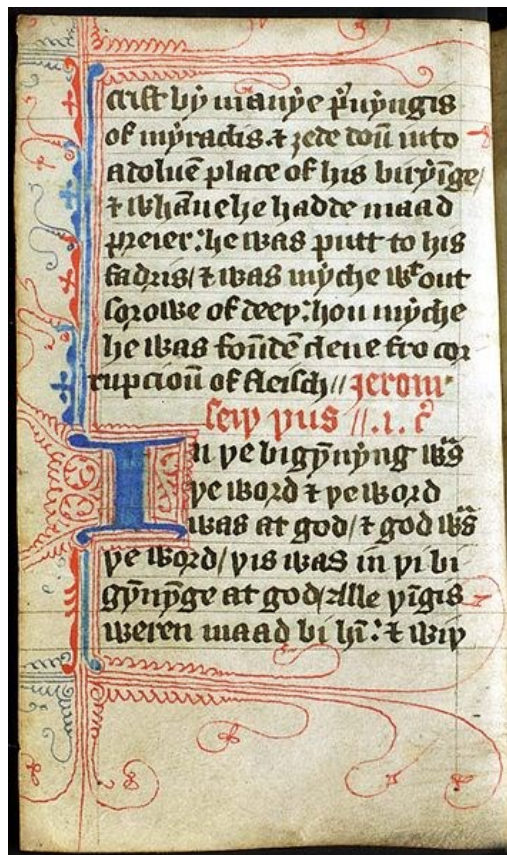 crist bẏ manẏe p̃uẏngis
of mẏraclis. ⁊ ȝede doũ into
a doluẽ place of his buriẏ̃ge/
⁊ whãne he hadde maad
preier: he was putt to his
fadris/ ⁊ was mẏche wᵗ out
sorowe of deeþ: hou mẏche
he was foũdẽ clene fro cor
rupcioũ of fleisch// Jerom
seiþ þus //.i. c̃
In þe bigẏ̃nẏng wᵃs
þe word ⁊ þe word
was at god/ ⁊ god wᵃs
þe word/ þis was in þi bi
gẏ̃nẏ̃ge at god/ Alle þĩgis
weren maad bi hĩ: ⁊ wiþ